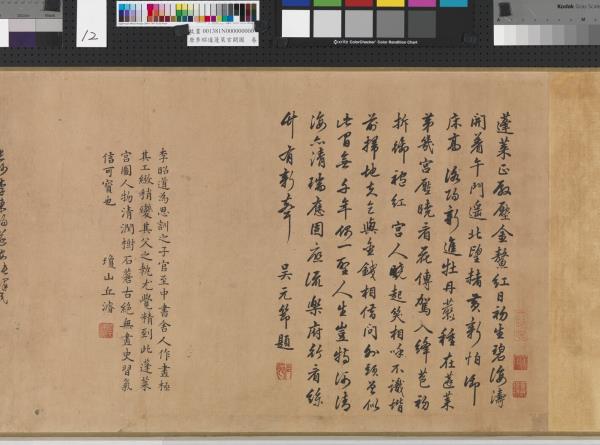 Kodak Gray Scale
12
故畫 001381N000000000
唐李昭道蓬萊宮闕圖 卷
x-rite ColorChecker Color Rendition Chart
蓬萊正殿壓金鰲紅日初生碧海濤
開着午門遥北望赭黄新怕御
床高 洛陽新進牡丹叢種在蓬萊
第幾宮壓曉看花傳駕入絳苞初
拆 紅 宮人曉起笑相呼不識堦
前掃地夫乞與金錢相借問外頭 似
此間無 千年仍一聖人生豈特河清
海亦清瑞應圖應流樂府行看絲
竹有新聲 吳元節題
李昭道為思訓之子官至中書舍人作畫極
其工緻稍變其父之執尤覺精到此蓬萊
宮圖人物清潤樹石蒼古絕無畫史習氣
信可寶也 瓊山丘濬